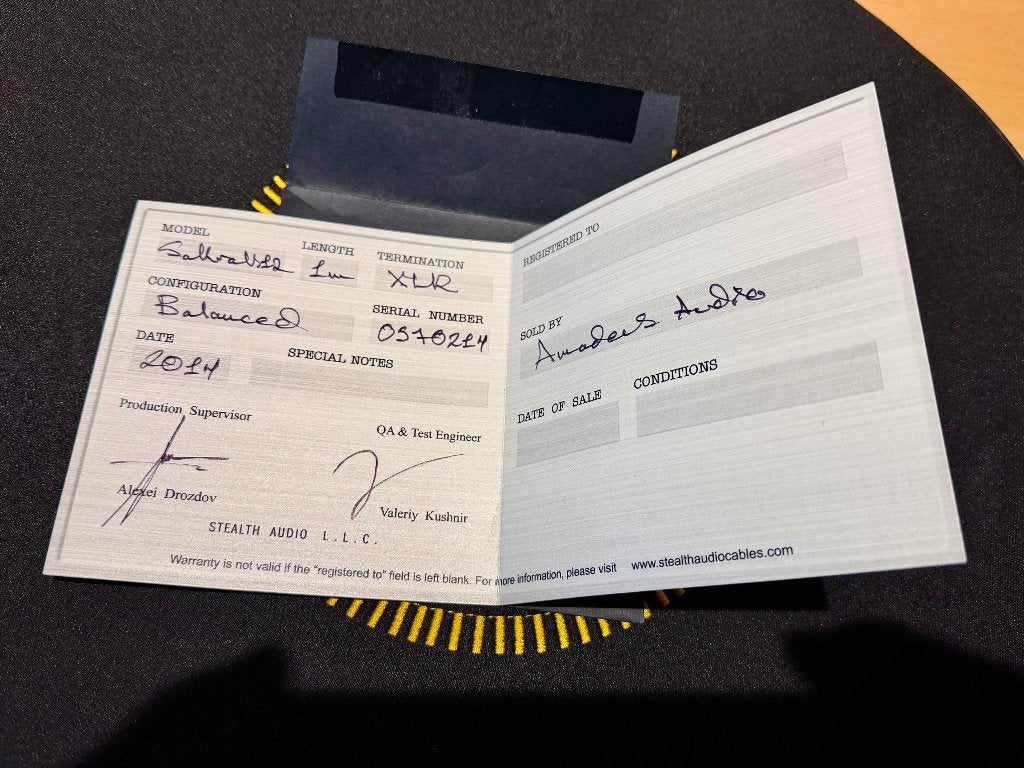 MODEL LENGTH TERMINATION
SakraV12 1m XLR
CONFIGURATION SERIAL NUMBER
Balanced 0570214
DATE SPECIAL NOTES
2014
Production Supervisor
QA & Test Engineer
Alexei Drozdov
Valeriy Kushnir
STEALTH AUDIO L.L.C.
Warranty is not valid if the "registered to" field is left blank. For more information, please visit www.stealthaudiocables.com
REGISTERED TO
SOLD BY
Amadeus Audio
DATE OF SALE CONDITIONS